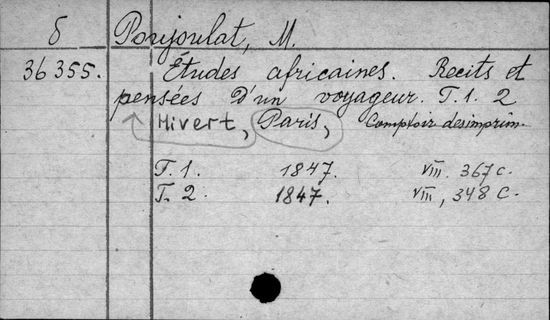 б Poujoulat, M.
36355. Études africaines. Recits et
pensées d'un voyageur. T. 1. 2
Hivert, Paris, Comptoir desimprim.
T. 1. 1847. VIII. 367 c.
T. 2. 1847. VIII, 348 c.